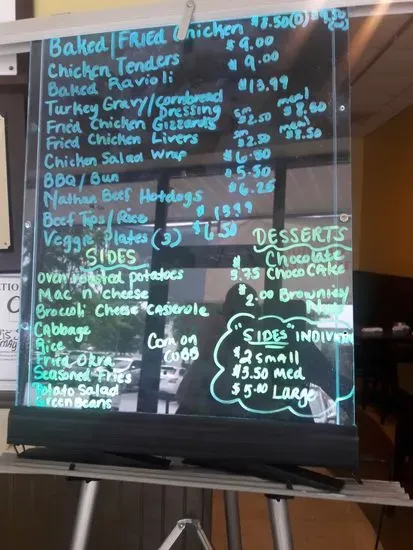 Baked/Fried Chicken $8.50(D)
Chicken Tenders $9.00
Baked Ravioli $9.00
Turkey Gravy/cornbread Dressing $13.99
Fried Chicken Gizzards sm $2.50 meal $8.50
Fried Chicken Livers sm $2.50 meal $8.50
Chicken Salad Wrap $6.50
BBQ/Bun $5.50
Nathan Beef Hotdogs $6.25
Beef Tips/Rice $13.99
Veggie Plates (3) $6.50
SIDES
oven roasted potatoes
Mac 'n' cheese
Broccoli cheese casserole
Cabbage
Rice
Fried Okra
Seasoned Fries
Potato Salad
Green Beans
Corn on
COBB
DESSERTS
Chocolate
$3.75 Choco CAke
$2.00 Brownies/
"SIDES" INDIVI
$2 small
$3.50 Med
$5.00 Large